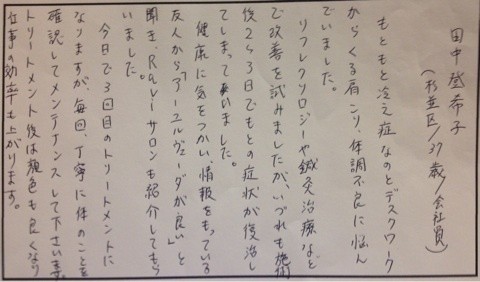 田中登希子
(杉並区/37歳/会社員)
もともと冷え症なのとデスクワーク
からくる肩こり、体調不良に悩ん
でいました。
リフレクソロジーや鍼灸治療など
で改善を試みましたが、いづれも施術
後2〜3日でもとの症状が復活し
てしまっていました。
健康に気をつかい、情報をもっている
友人から「アーユルヴェーダが良い」と
聞き、Raviサロンも紹介してもら
いました。
今日で3回目のトリートメントに
なりますが、毎回、丁寧に体のことを
確認してメンテナンスして下さいます。
トリートメント後は顔色も良くなり
仕事の効率も上がります。